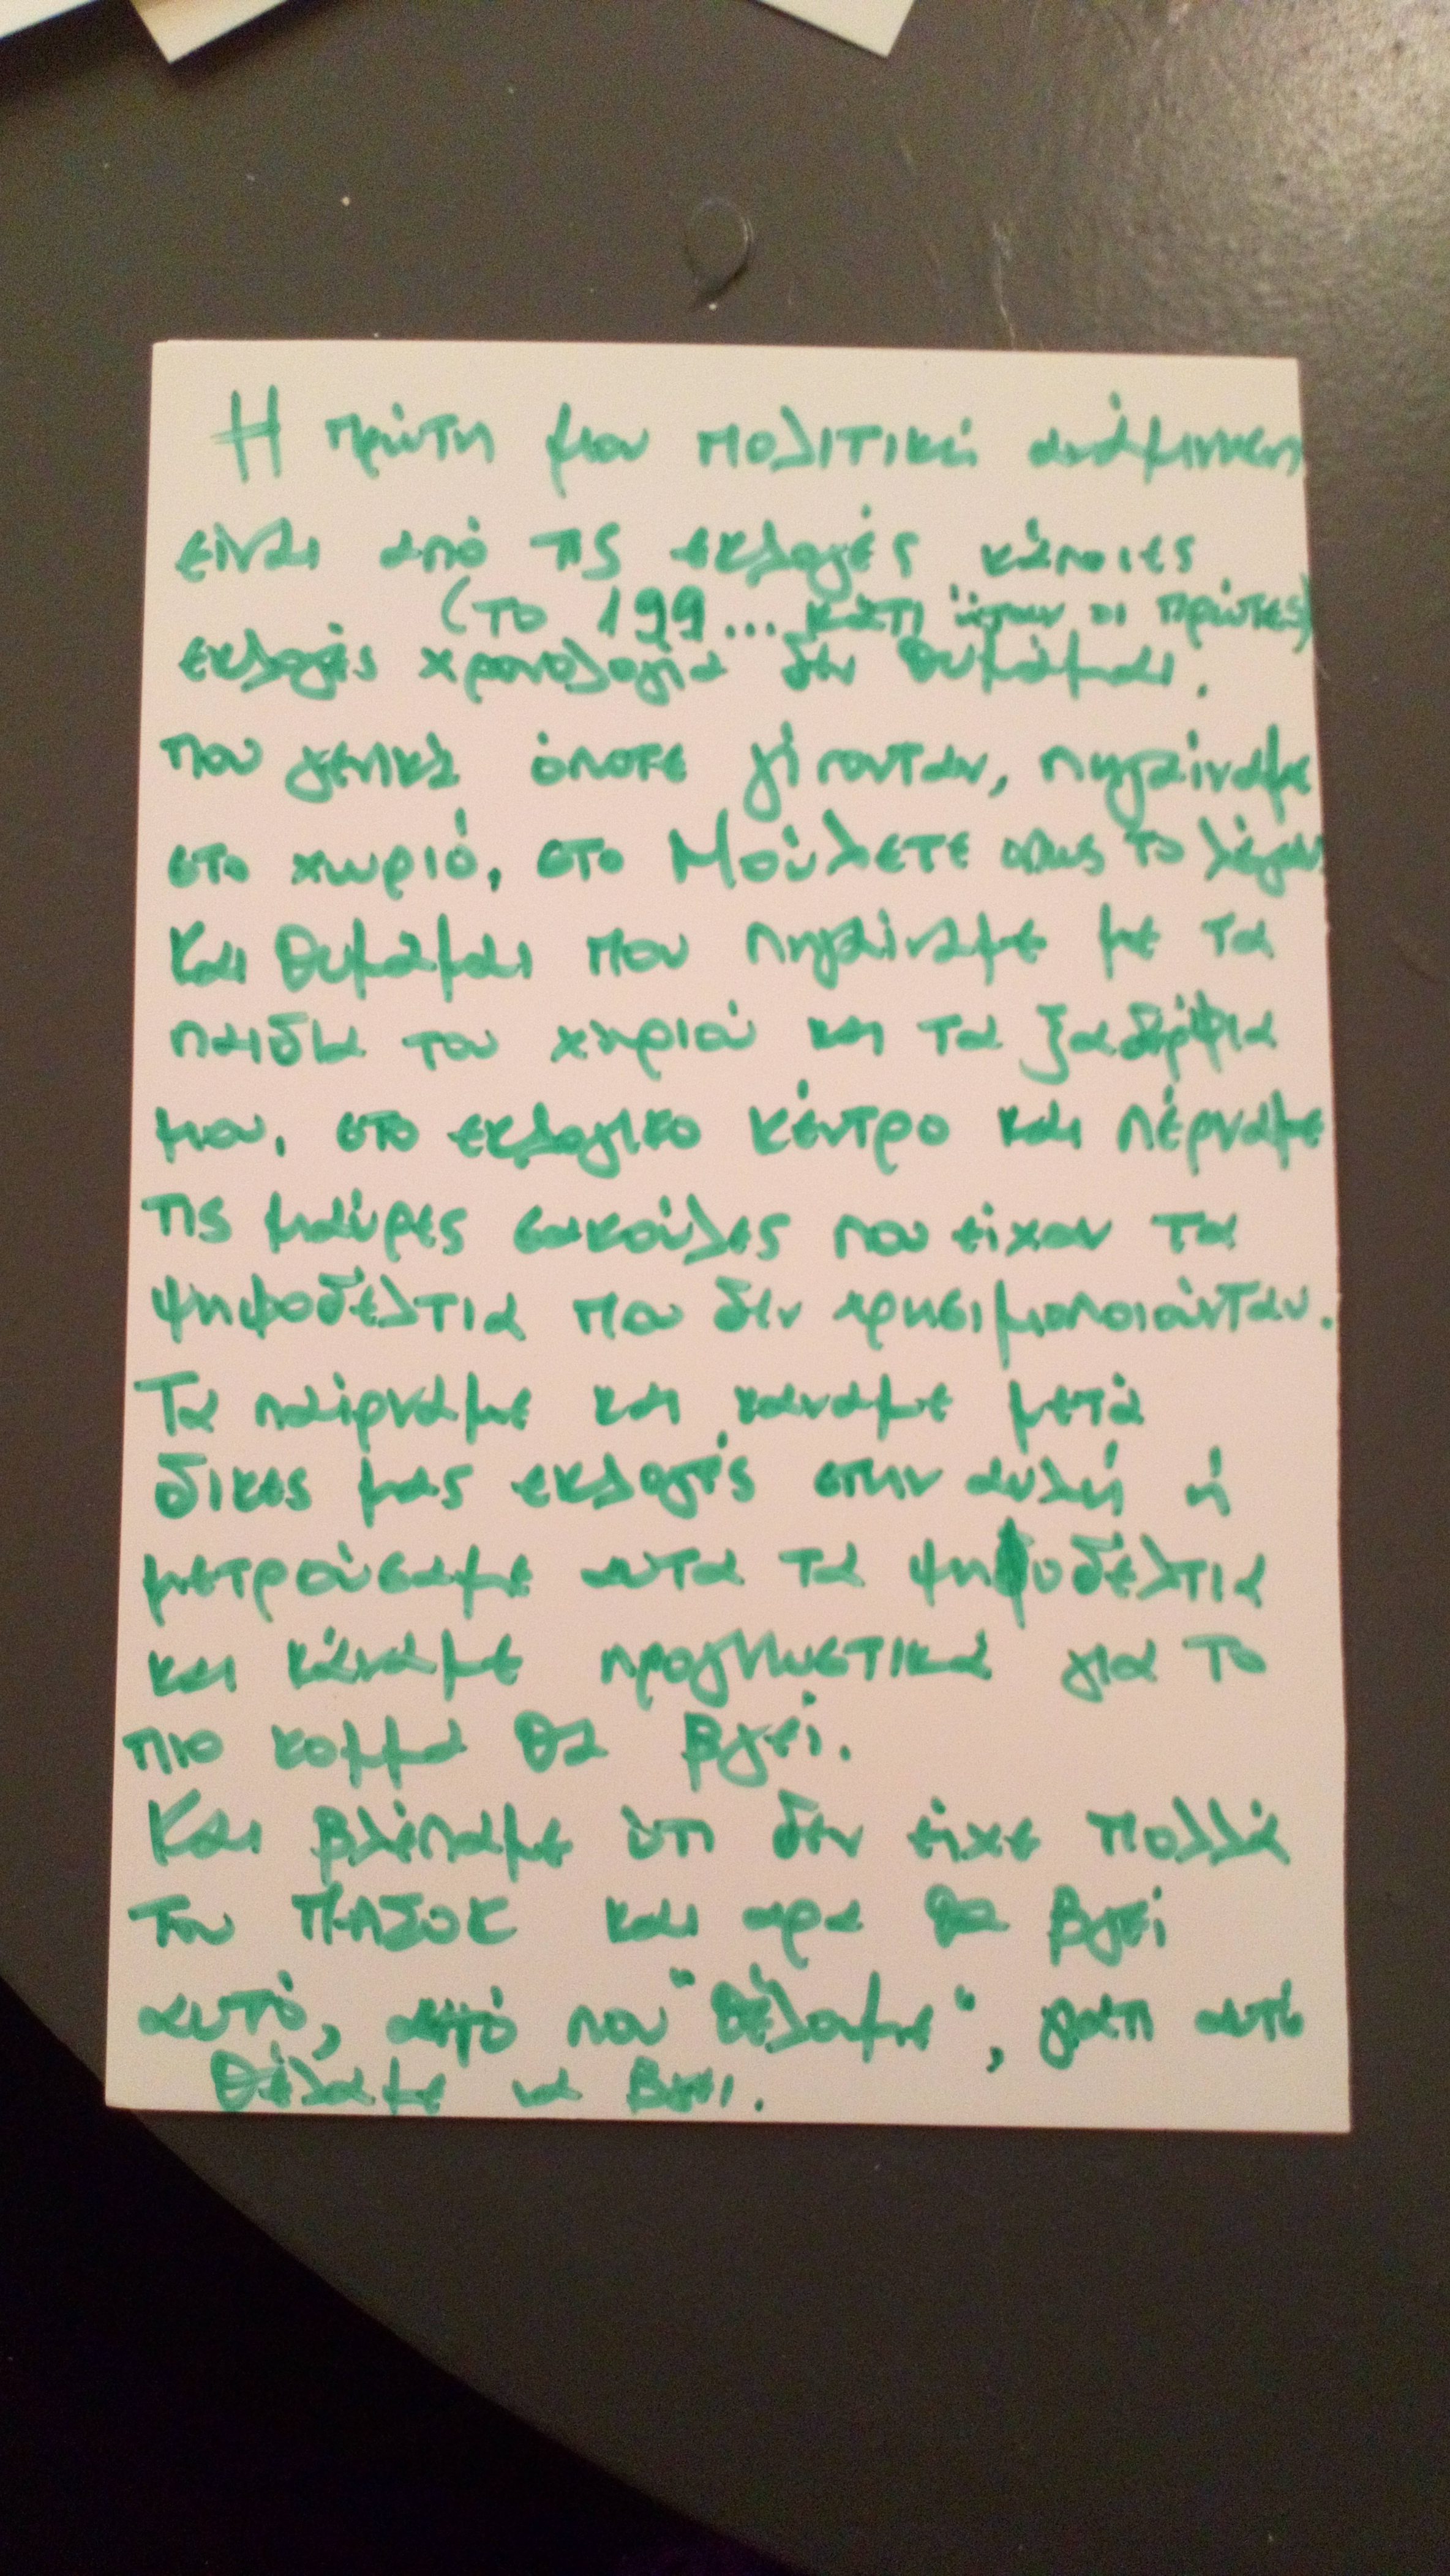 Η πρώτη μου πολιτική ανάμνηση
είναι από τις εκλογές κάποιες
(το 199... κάτι ήταν οι πρώτες)
εκλογές χρονολογία δεν θυμάμαι.
που γενικά όποτε γίνονταν, πηγαίναμε
στο χωριό, στο Μούλετε όπως το λέγαν
Και θυμάμαι που πηγαίναμε με τα
παιδιά του χωριού και τα ξαδέρφια
μου, στο εκλογικο κέντρο και πέρναμε
τις μαύρες σακούλες που είχαν τα
ψηφοδέλτια που δεν χρησιμοποιόύνταν.
Τα παίρναμε και καναμε μετά
δικες μας εκλογές στην αυλή ή
μετρούσαμε αυτα τα ψηφοδέλτια
και κάναμε προγνωστικά για το
πιο κομμα θα βγεί.
Και βλέπαμε ότι δεν είχε πολλά
του ΠΑΣΟΚ και αρα θα βγεί
αυτό, αυτό που "θέλαμε", γιατι αυτό
θέλαμε να βγει.